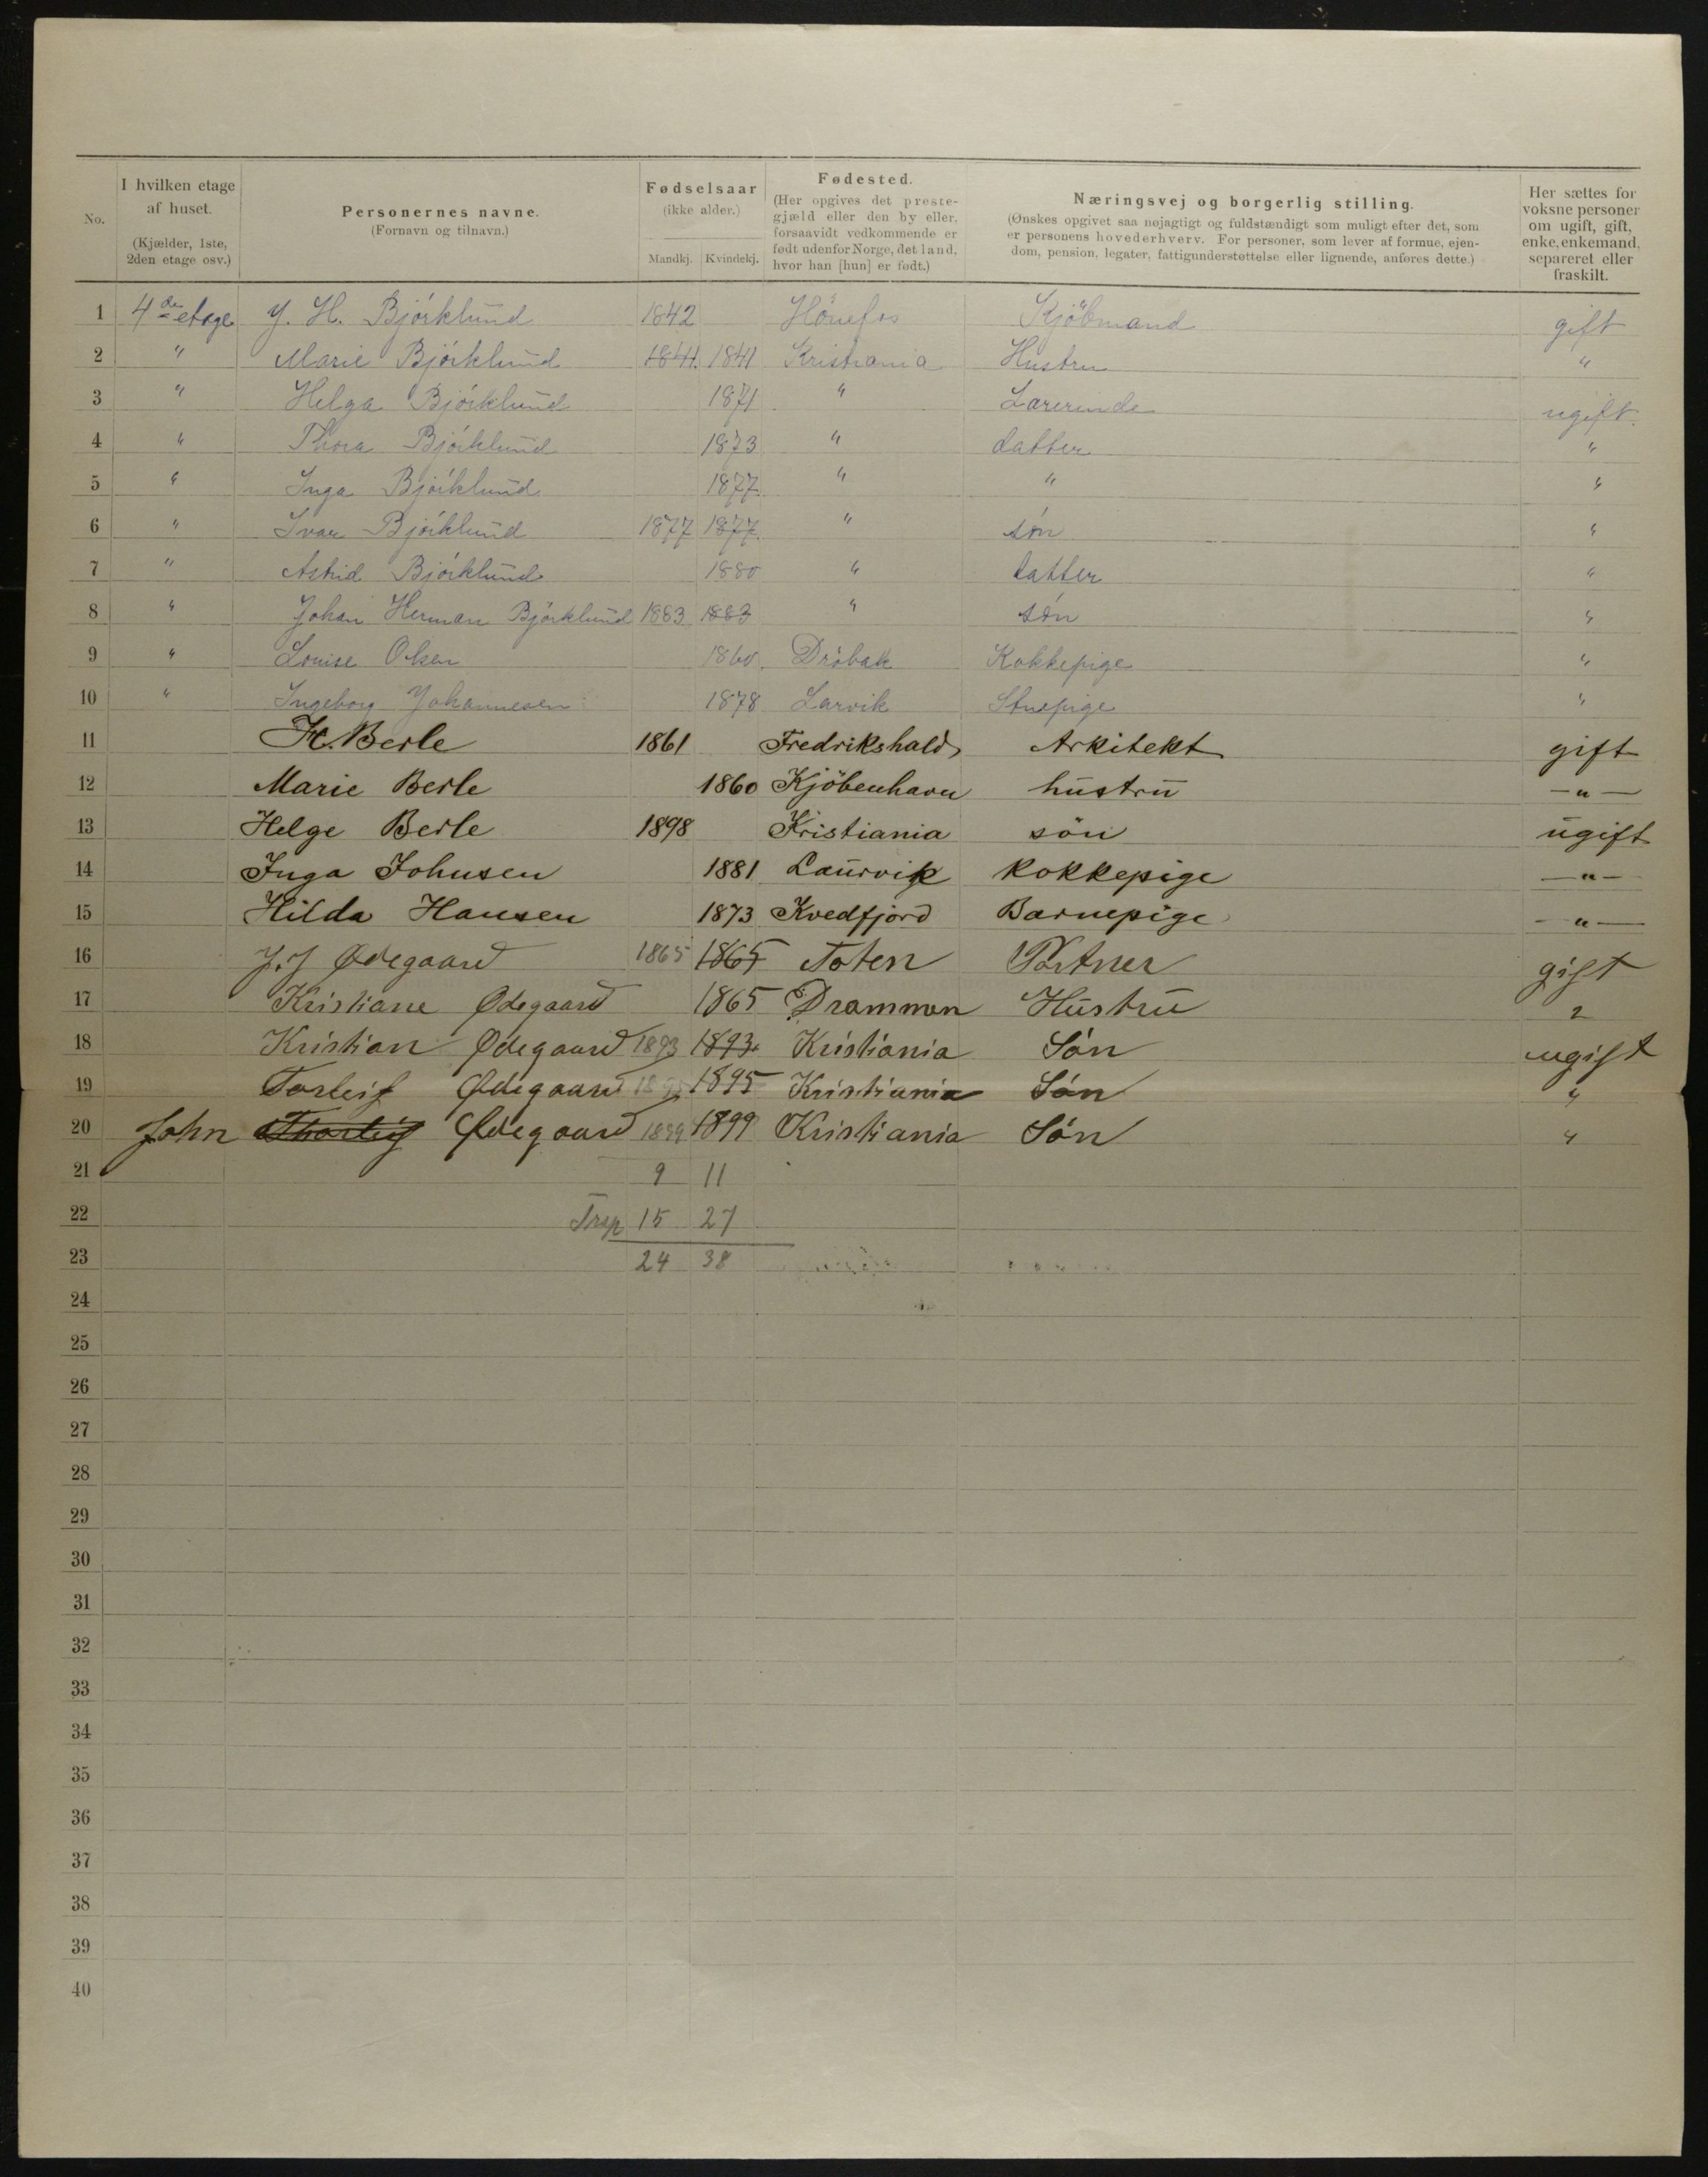 No. I hvilken etage af huset. (Kjælder, 1ste, 2den etage osv.) Personernes navne. (Fornavn og tilnavn.) Fødselsaar (ikke alder.) Mandkj. Kvindekj. Fødested. (Her opgives det prestegjæld eller den by eller, forsaavidt vedkommende er født udenfor Norge, det land, hvor han [hun] er født.) Næringsvej og borgerlig stilling. (Ønskes opgivet saa nøjagtigt og fuldstændigt som muligt efter det, som er personens hovederhverv. For personer, som lever af formue, ejendom, pension, legater, fattigunderstøttelse eller lignende, anføres dette.) Her sættes for voksne personer om ugift, gift, enke, enkemand, separeret eller fraskilt.
1 4de etage J. H. Bjórklund 1842 Hönefos Kjöbmand gift
2 " Marie Bjórklund 1841 1841 Kristiania Hustru "
3 " Helga Bjórklund 1871 " Lærerinde ugift.
4 " Thora Bjórklund 1873 " datter "
5 " Inga Bjórklund 1877 " " "
6 " Ivar Bjórklund 1877 1877 " són "
7 " Astrid Bjórklund 1880 " datter "
8 " Johan Herman Bjórklund 1883 1883 " són "
9 " Louise Olsen 1860. Dróbak Kokkepige "
10 " Ingeborg Johannesen 1878 Larvik Stuepige "
11 H. Berle 1861 Fredrikshald Arkitekt gift
12 Marie Berle 1860 Kjöbenhavn hustru — " —
13 Helge Berle 1898 Kristiania sön ugift
14 Inga Johnsen 1881 Laurvik kokkepige — " —
15 Hilda Hansen 1873 Kvedfjord Barnepige — " —
16 J. J Ødegaard 1865 1865 Toten Portner gift
17 Kristiane Ødegaard 1865 Drammen Hustru "
18 Kristian Ødegaard 1893 1893 Kristiania Són ugift
19 Torleif Ødegaard 1895 1895 Kristiania Són "
20 John Thorleif Ødegaard 1899 1899 Kristiania Són "
21 9 11
22 Trsp 15 27
23 24 38
24
25
26
27
28
29
30
31
32
33
34
35
36
37
38
39
40